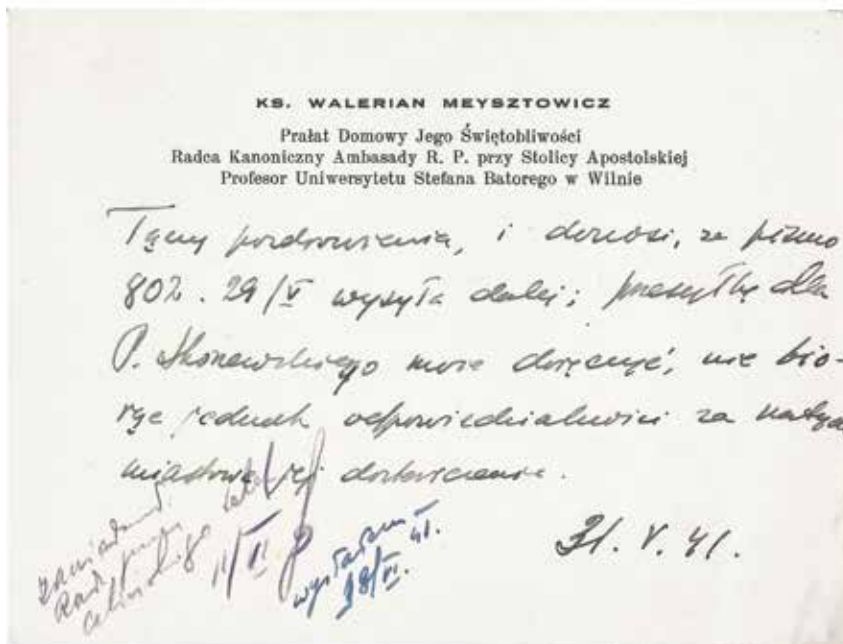 KS. WALERIAN MEYSZTOWICZ
Prałat Domowy Jego Świętobliwości
Radca Kanoniczny Ambasady R. P. przy Stolicy Apostolskiej
Profesor Uniwersytetu Stefana Batorego w Wilnie
Łączy pozdrowienia, i donosi, że pismo
802. 29/V wysyła dalej; przesyłkę dla
P. może doręczyć, nie bio-
rąc jednak odpowiedzialności za natych
miastowe jej dostarczenie.
31. V. 41.
11/VI
wysłałem
18/VI. 41.